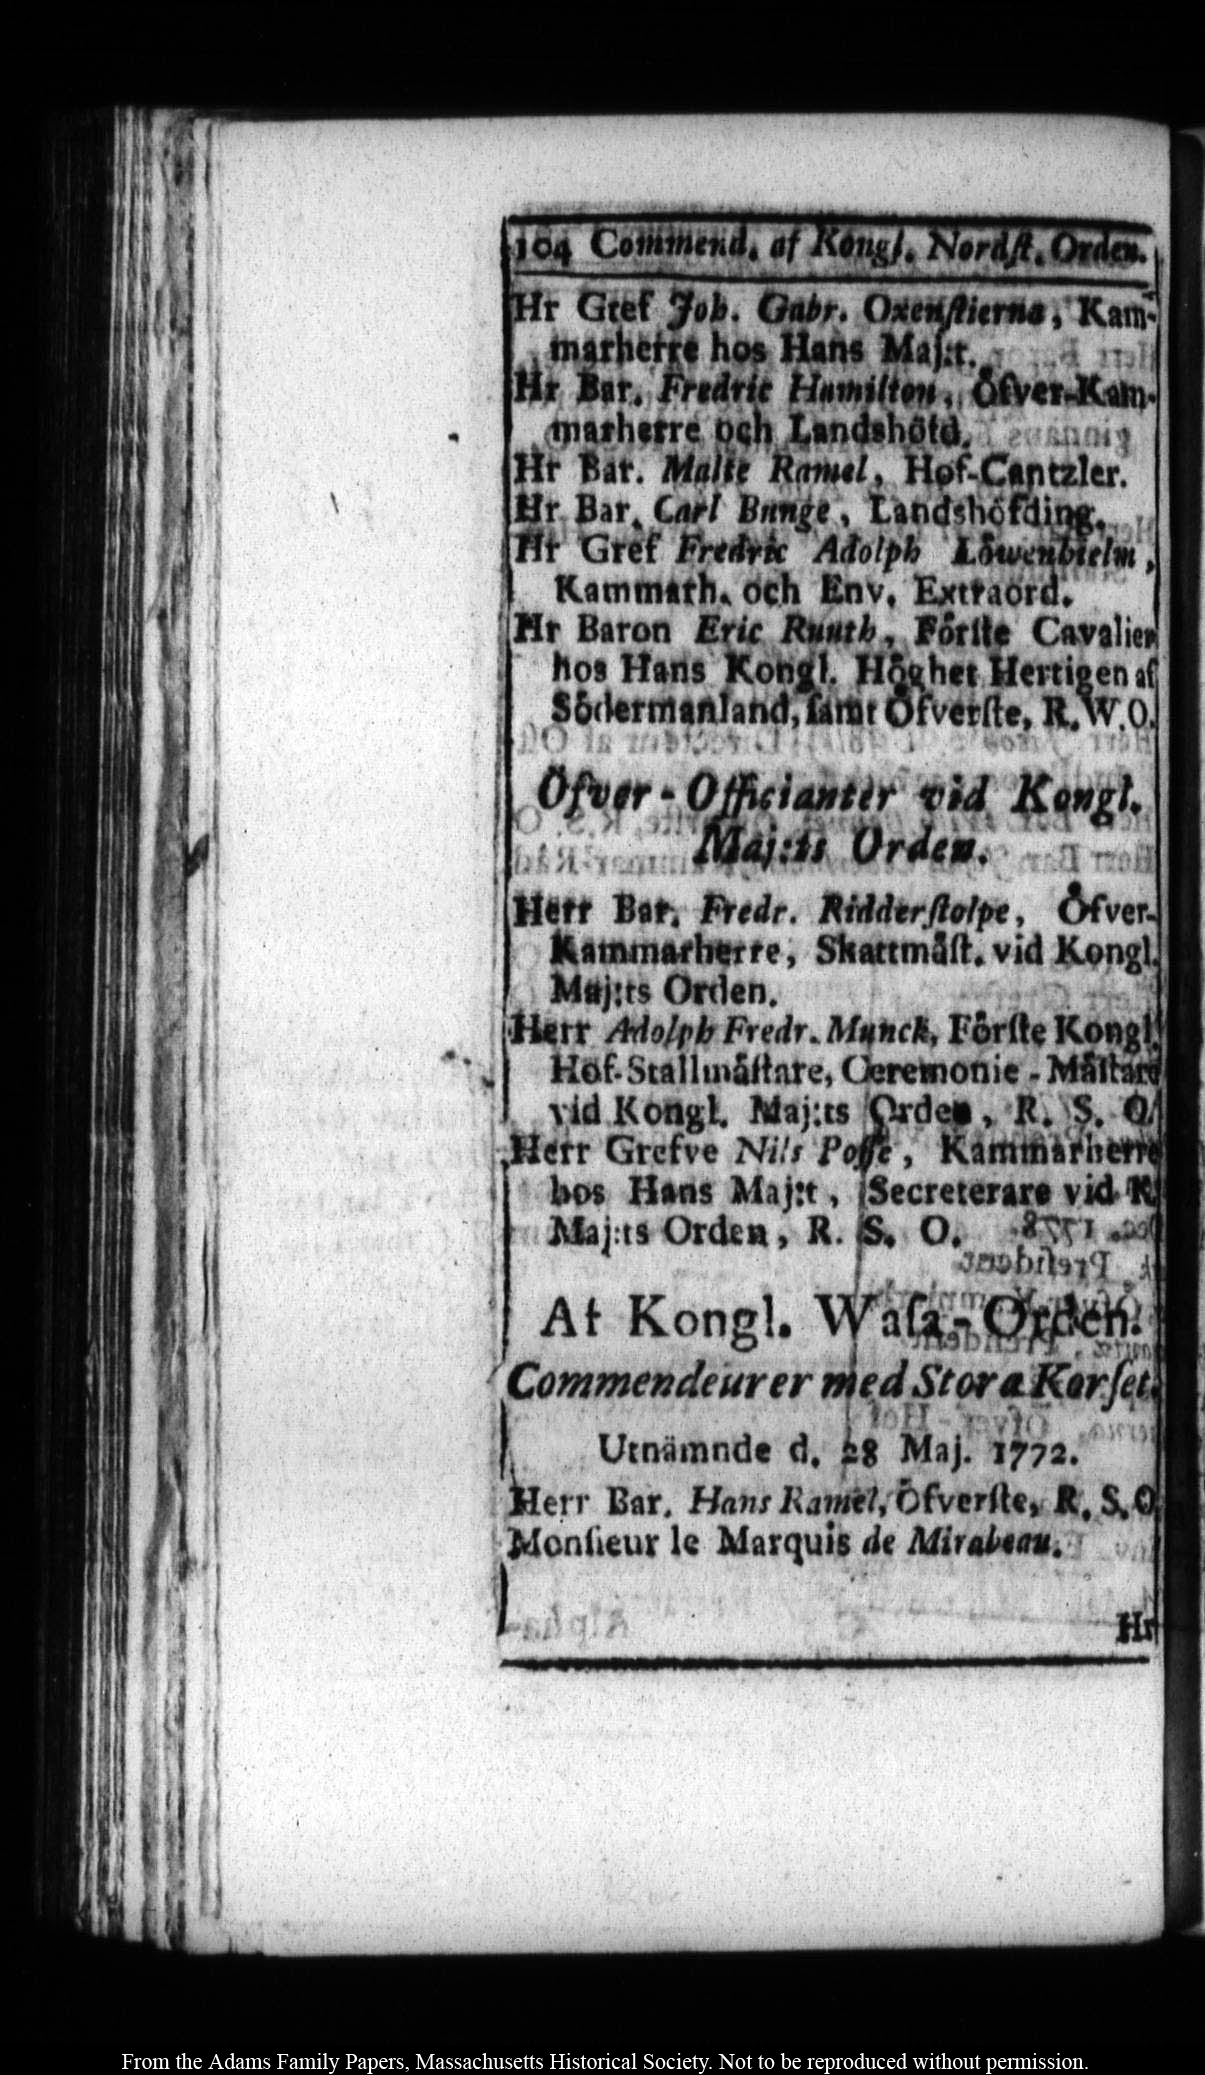 104 Commend. af Kongl. Nordſt. Orden.
Hr Gref Joh. Gabr. Oxenſtierna, Kam-
marherre hos Hans Maj:t.
Hr Bar. Fredric Hamilton, Öfver-Kam-
marherre och Landshöfd.
Hr Bar. Malte Ramel, Hof-Cantzler.
Hr Bar. Carl Bunge, Landshöfding.
Hr Gref Fredric Adolph Löwenhielm,
Kammarh. och Env. Extraord.
Hr Baron Eric Ruuth, Förſte Cavalier
hos Hans Kongl. Höghet Hertigen af
Södermanland, ſamt Öfverſte, R.W.O.
Öfver-Officianter vid Kongl.
Maj:ts Orden.
Herr Bar. Fredr. Ridderſtolpe, Öfver-
Kammarherre, Skattmäſt. vid Kongl.
Maj:ts Orden.
Herr Adolph Fredr. Munck, Förſte Kongl.
Hof-Stallmäſtare, Ceremonie-Mäſtare
vid Kongl. Maj:ts Orden, R. S. O.
Herr Grefve Nils Poſſe, Kammarherre
hos Hans Maj:t, Secreterare vid K.
Maj:ts Orden, R. S. O.
Af Kongl. Waſa-Orden.
Commendeurer med Stora Korſet.
Utnämnde d. 28 Maj. 1772.
Herr Bar. Hans Ramel, Öfverſte, R. S. O
Monſieur le Marquis de Mirabeau.
Hr
From the Adams Family Papers, Massachusetts Historical Society. Not to be reproduced without permission.